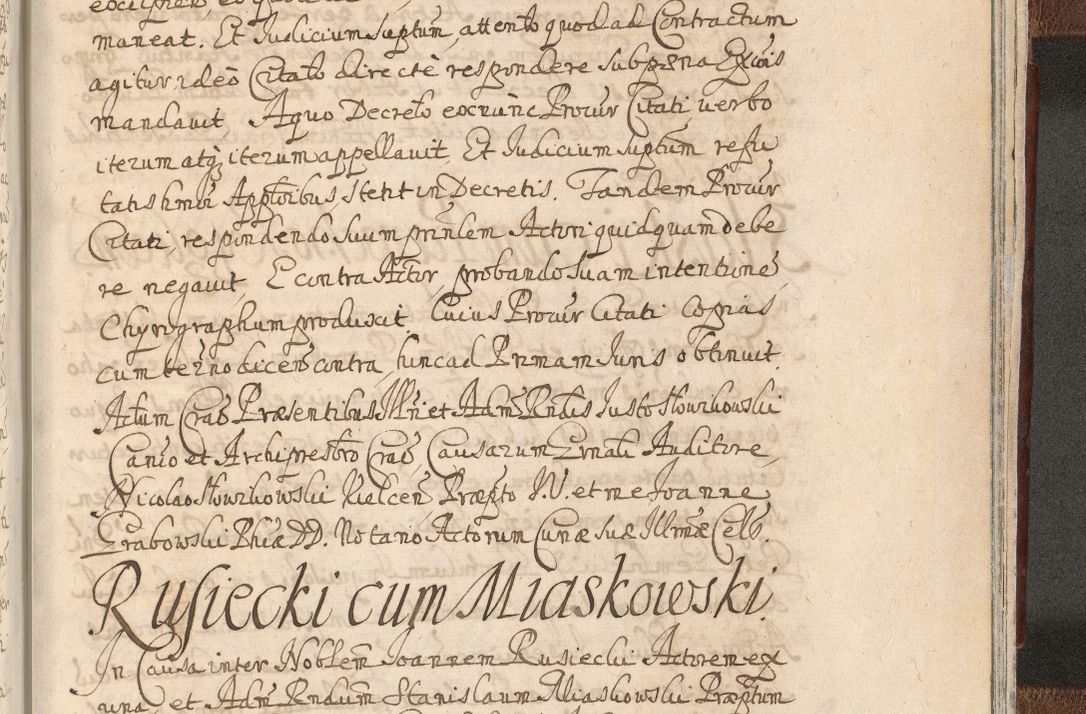 maneat. Et Judicium suptum, attento quod ad Contractum
agitur ideo Citato directe respondere sub pæna Exuis
mandavit. A quo Decreto exnunc Procur Citati verbo
iterum atq; iterum appellavit. Et Judicium suptum refu
tatis hmoi Appltoibus stetit in Decretis. Tandem Procur
Citati, respondendo suum prinlem Actori quidquam debe
re negavit. E contra Actor, probando suam intentione
Chyrographum produxit. Cuius Procur Citati copias
cum termo dicen contra, hinc ad Primam Juris obtinuit.
Actum Crac Præsentibus Illri et Adm Rndis Justo Słowikowski
Canico et Archipresbro Crac, Causarum Gnali Auditore,
Nicolao Słowikowski Kielcen Præpto J.V. et me Joanne
Grabowski Phiæ DD. Notario Actorum Curiæ suæ Illmæ Cels.
Rusiecki cum Miaskowski.
In Causa inter Noblem Joannem Rusiecki Actorem ex
una, et Adm Rndum Stanislaum Miaskowski Præptum